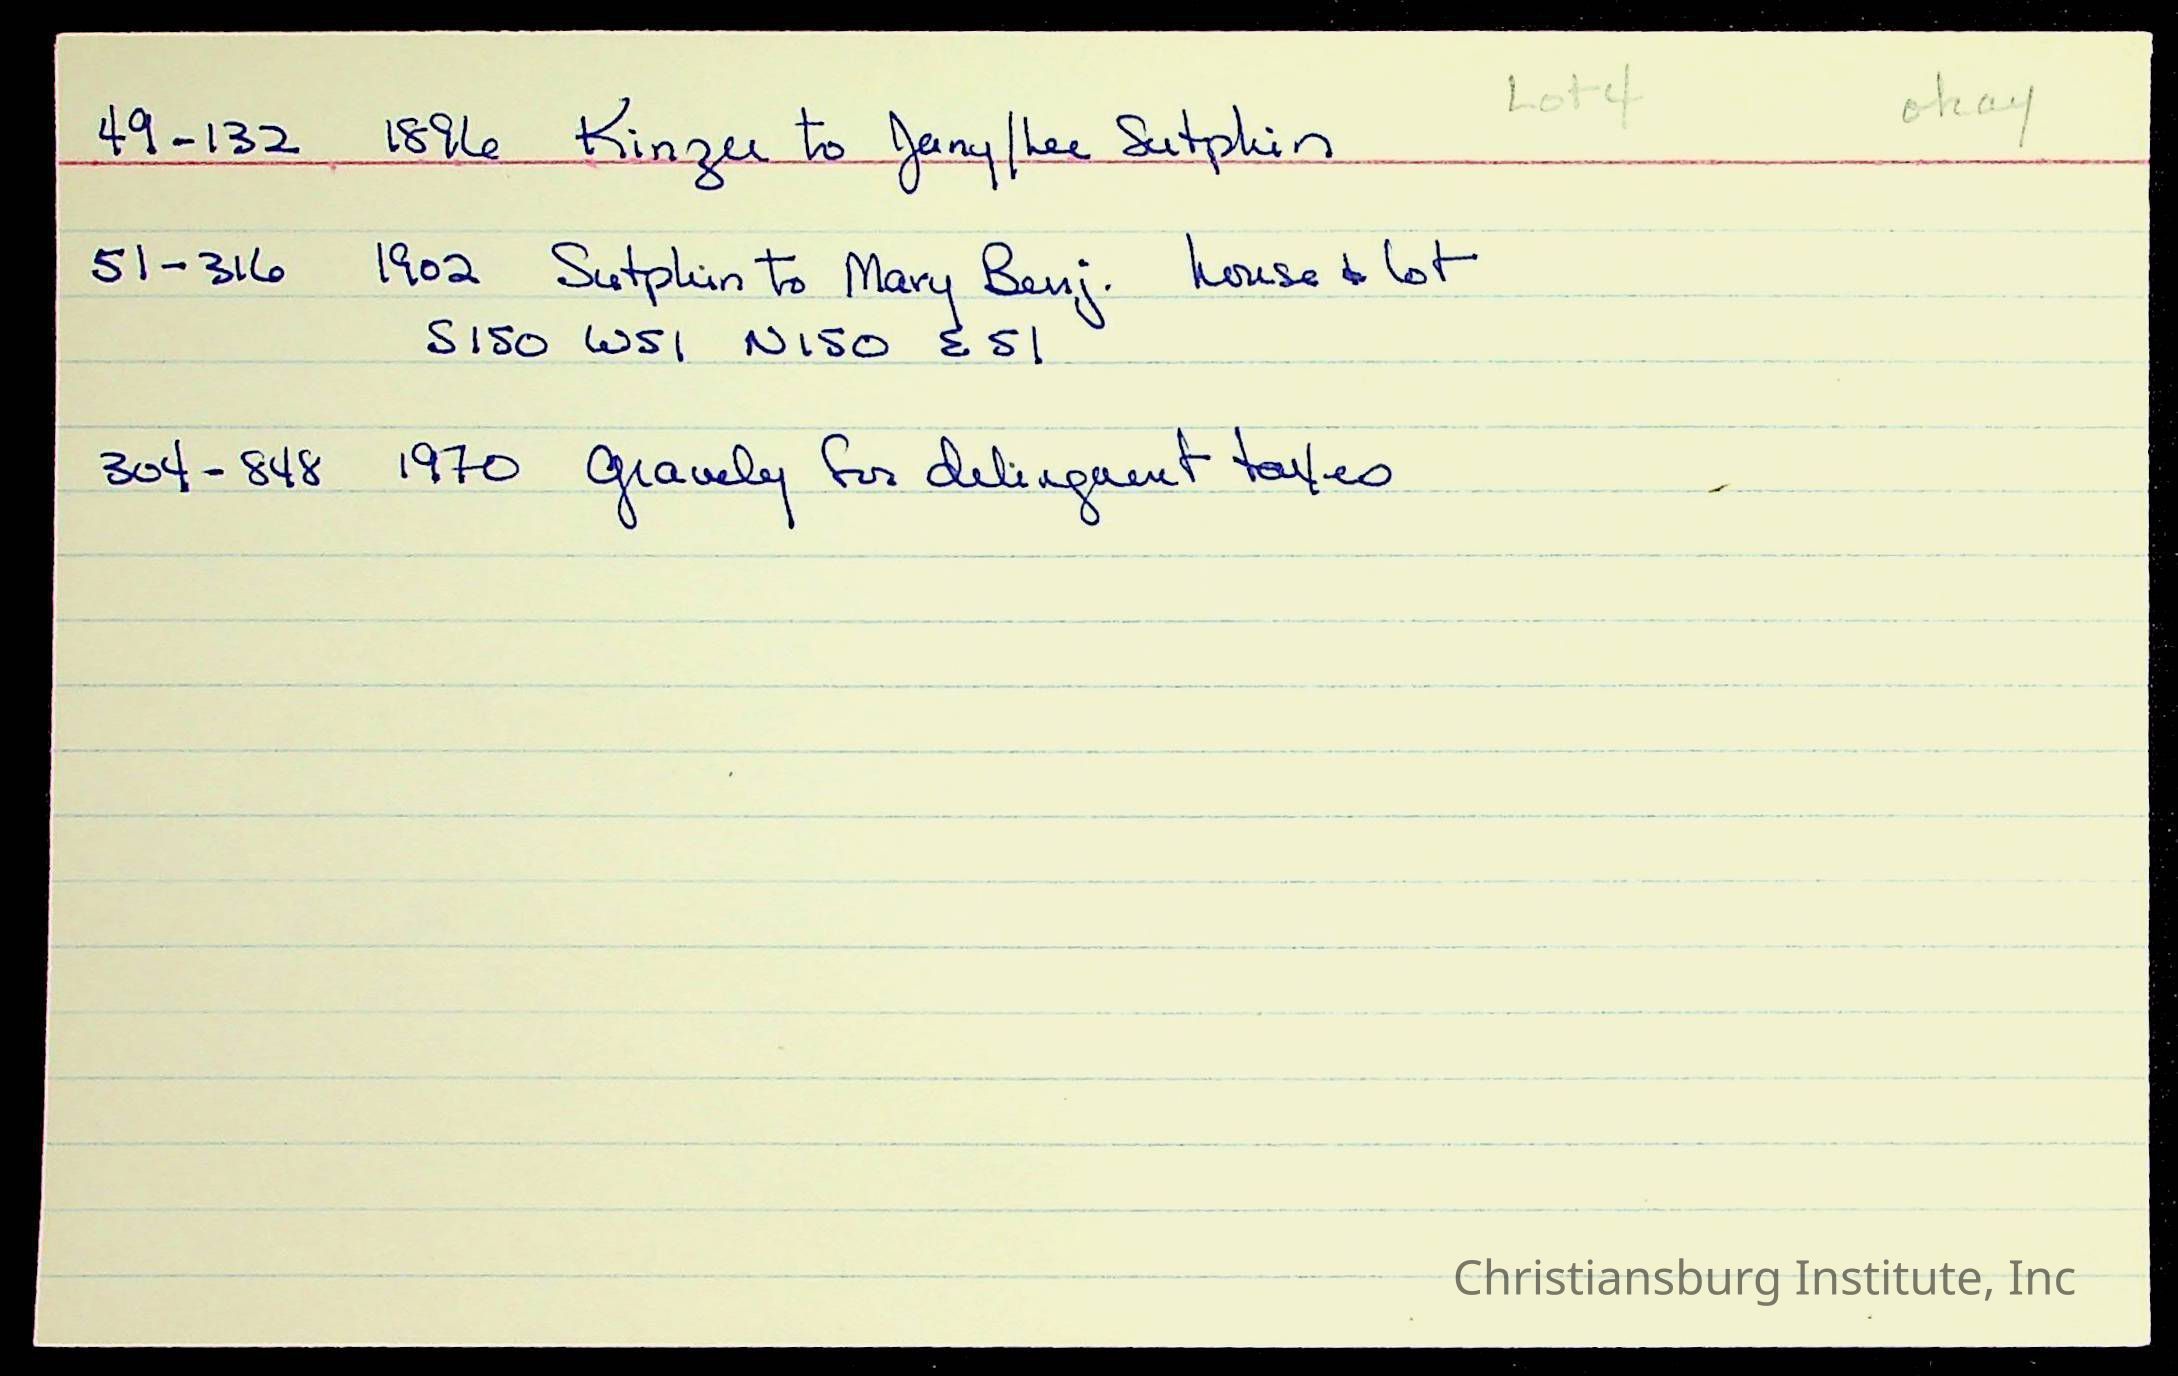 Lot 4 okay
49-132 1896 Kinzer to Jerry/Lee Sutphin
51-316 1902 Sutphin to Mary Benj. house & lot
S150 W51 N150 E51
304-848 1970 Gravely for delinquent taxes
Christiansburg Institute, Inc